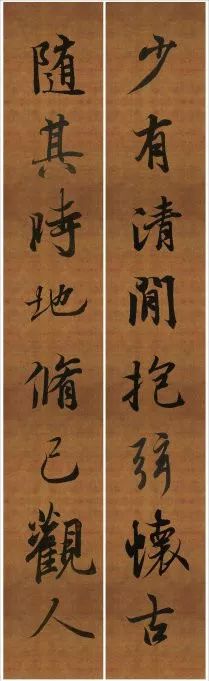 少有清閒抱弦懷古
随其時地脩己觀人